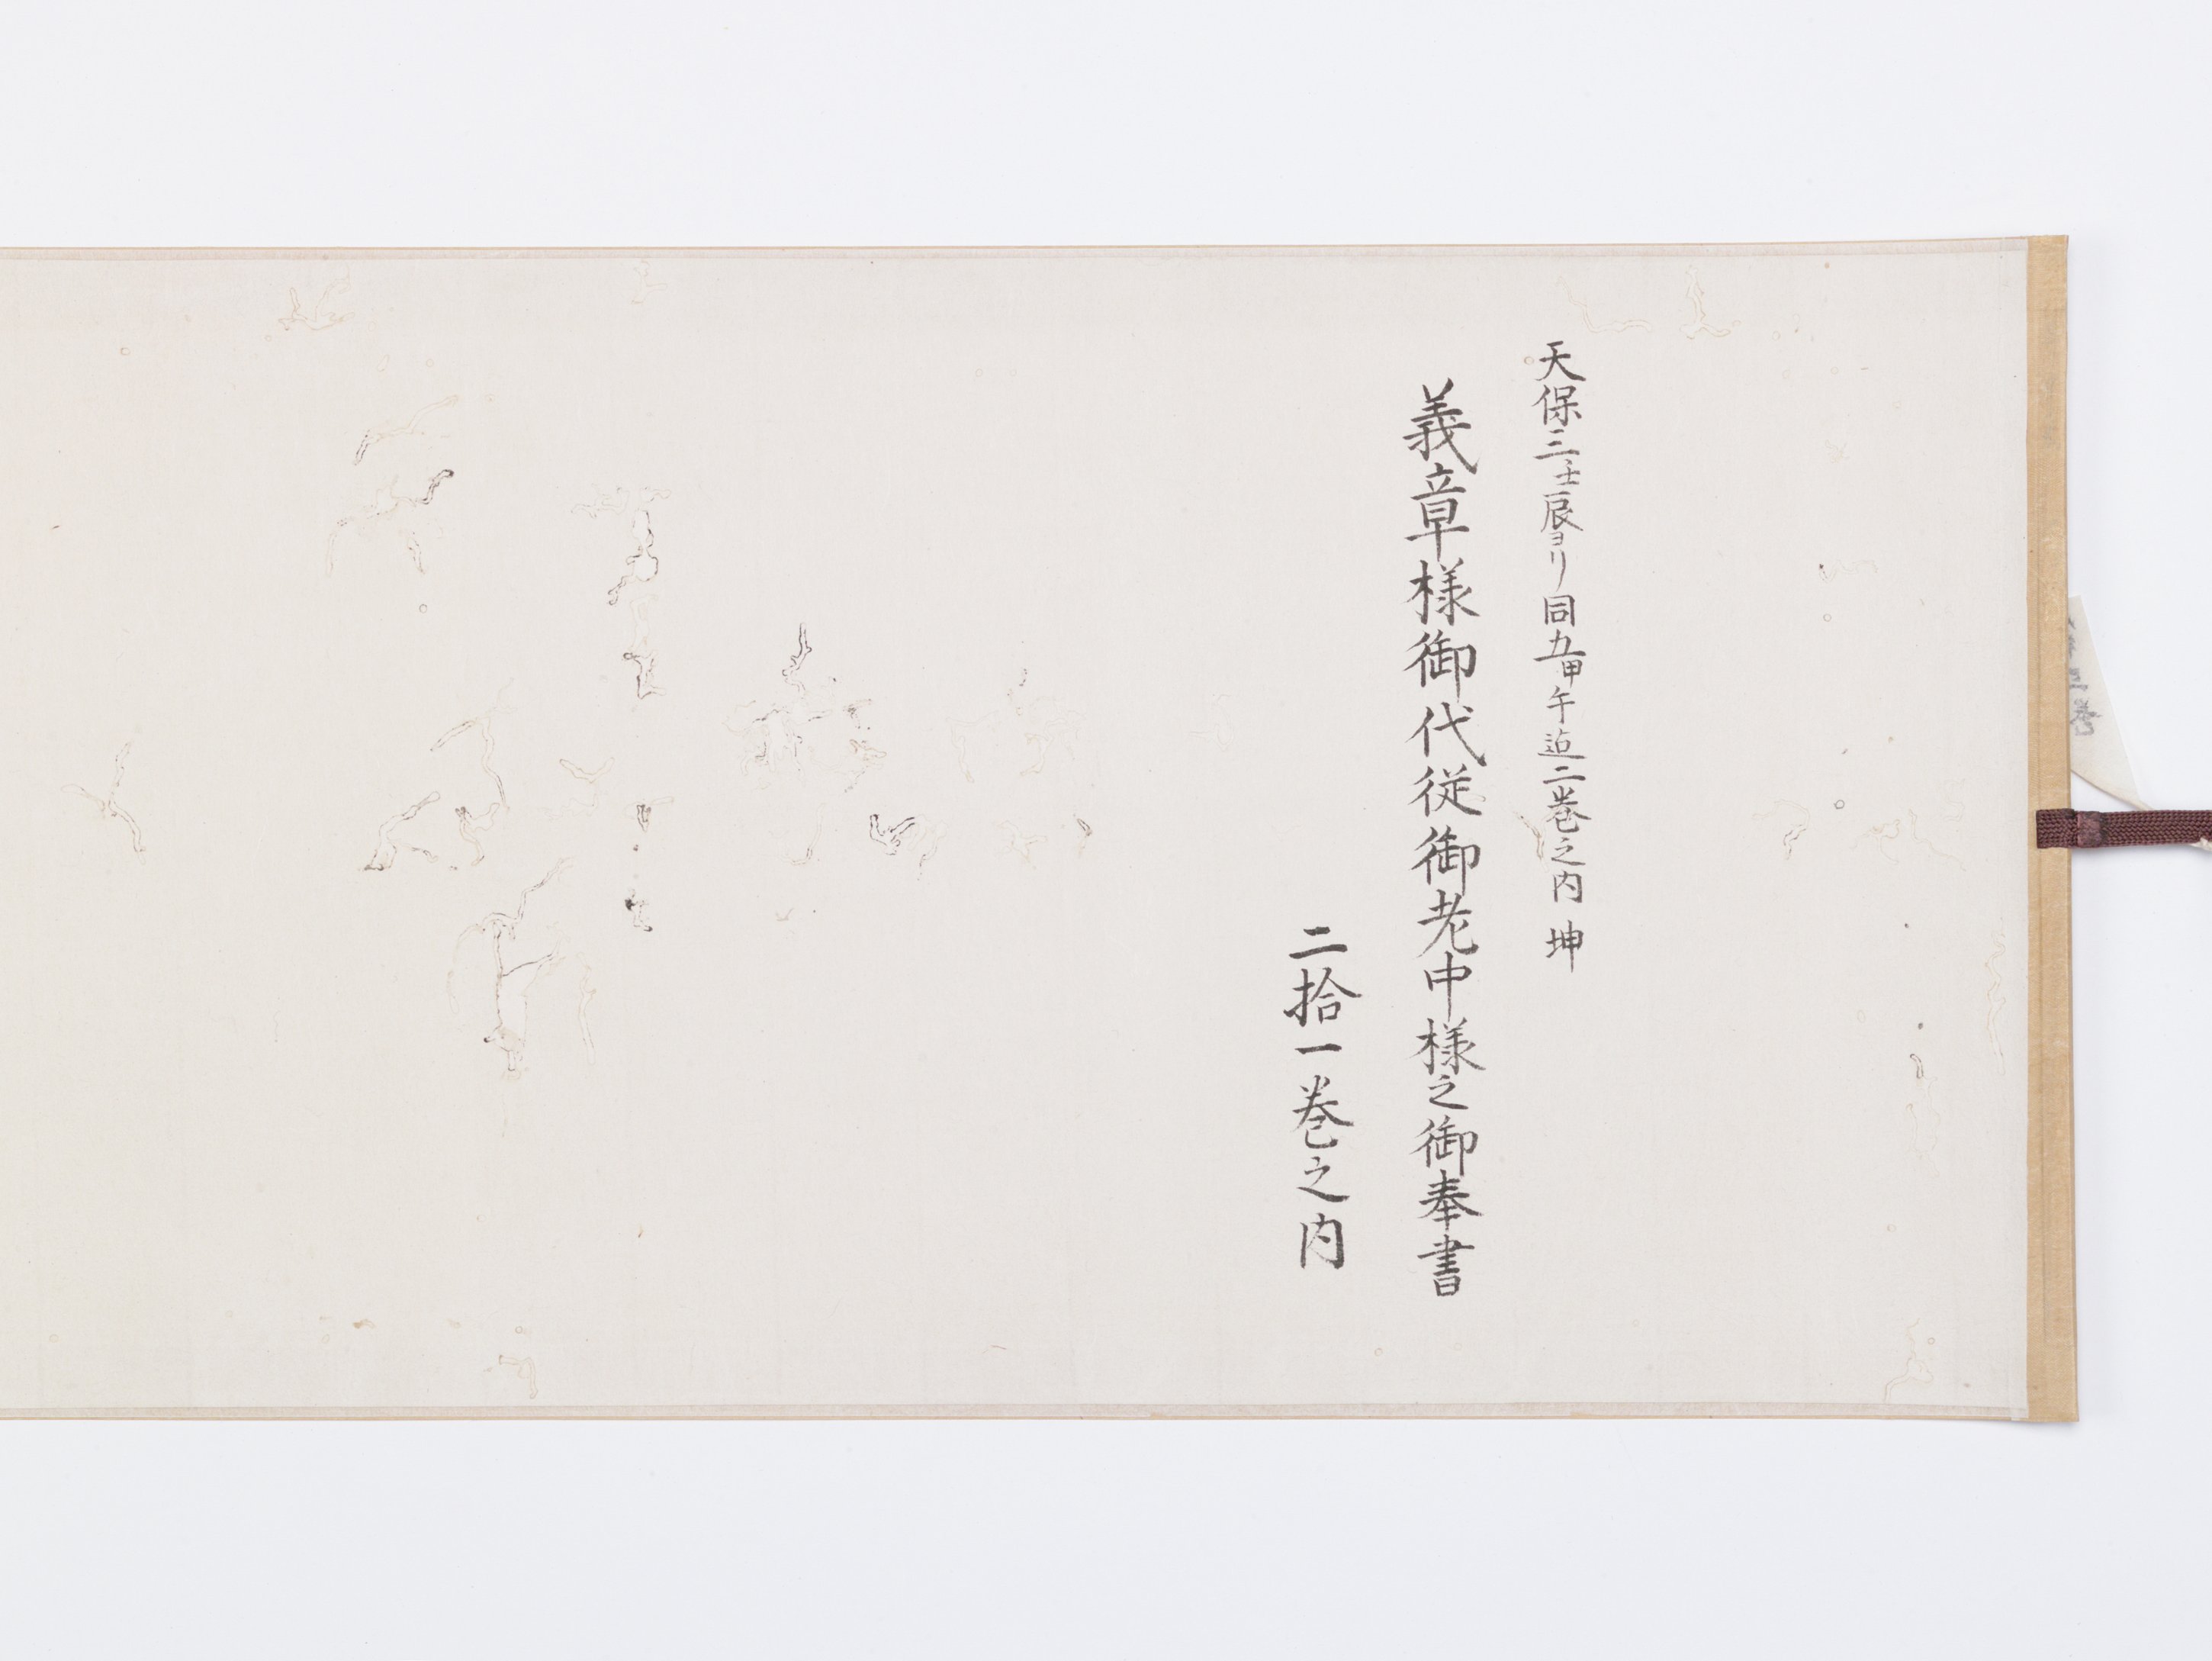 天保三壬辰ヨリ同五甲午迠二巻之内 坤
義章様御代従御老中様之御奉書
二拾一巻之内